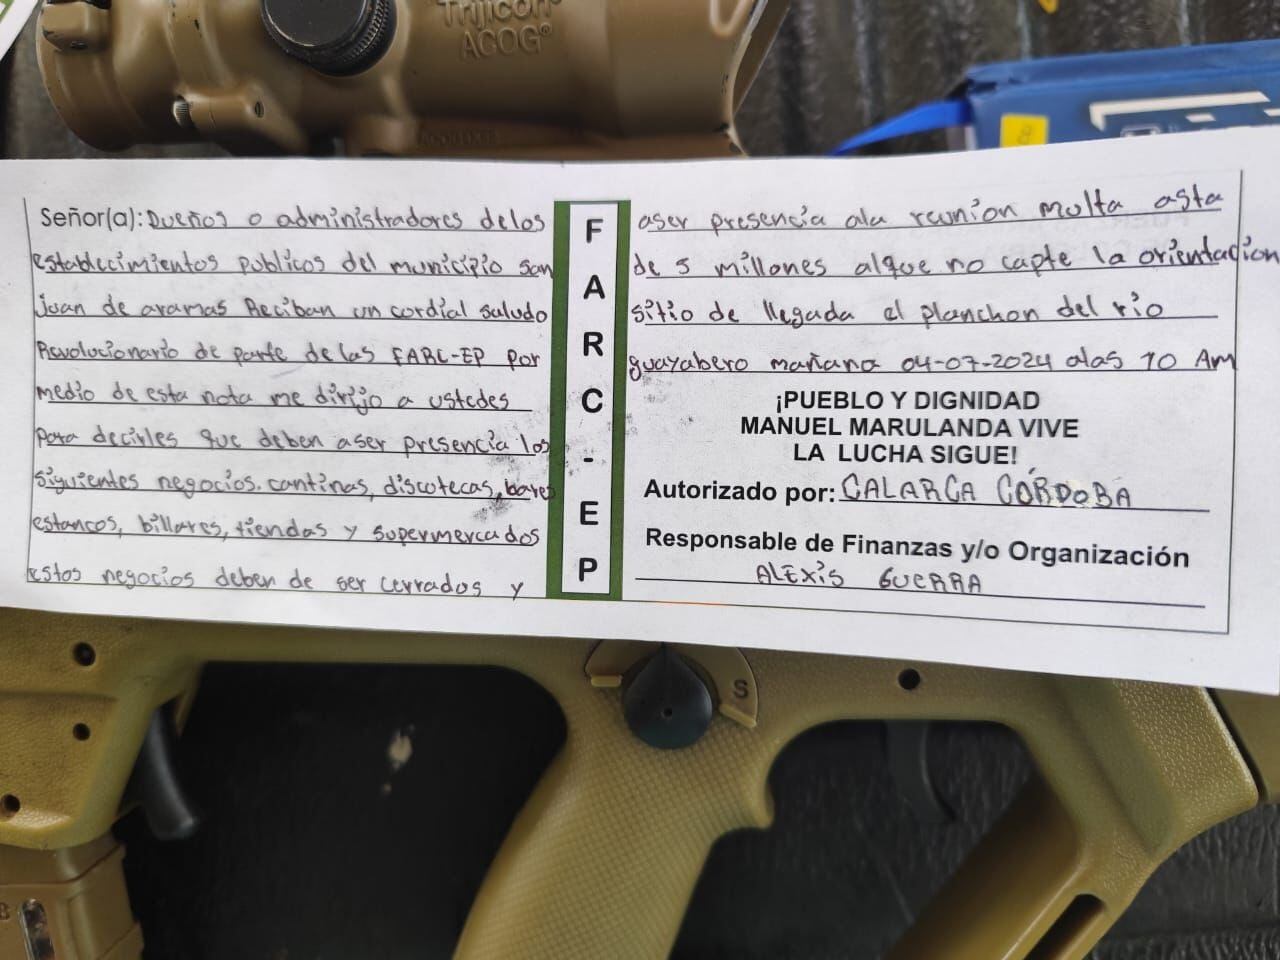 Trijicon®
ACOG®
Señor(a): Dueños o administradores delos
establecimientos publicos del municipio san
juan de aramas Reciban un cordial saludo
Revolucionario de parte de las FARC-EP por
medio de esta nota me dirijo a ustedes
para decirles que deben aser presencia los
siguientes negocios. cantinas, discotecas, bares
estancos, billares, tiendas y supermercados
estos negocios deben de ser cerrados y
FARC-EP
aser presencia ala reunion multa asta
de 5 millones alque no capte la orientacion
sitio de llegada el planchon del rio
guayabero mañana 04-07-2024 alas 10 AM
¡PUEBLO Y DIGNIDAD
MANUEL MARULANDA VIVE
LA LUCHA SIGUE!
Autorizado por: CALARCA CÓRDOBA
Responsable de Finanzas y/o Organización
ALEXIS GUERRA
S